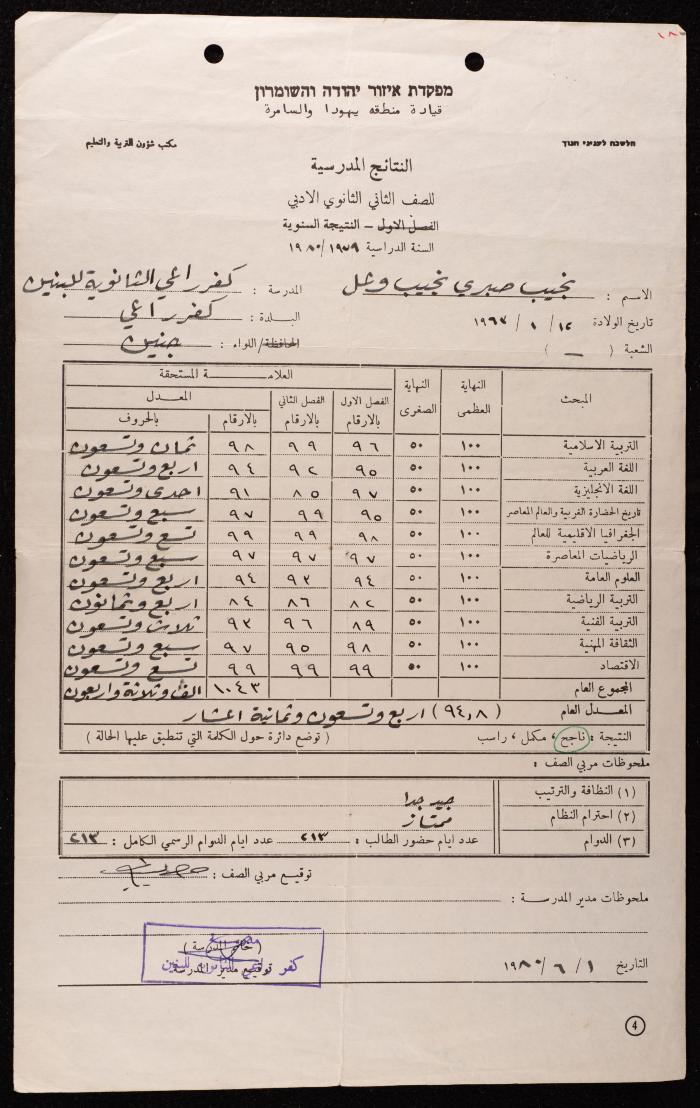 ١٨٠
מפקדת איזור יהודה והשומרון
قيادة منطقه يهودا والسامرة
הלשכה לעניני חנוך
مكتب شؤون التربية والتعليم
النتائج المدرسية
للصف الثاني الثانوي الادبي
الفصل الاول - النتيجة السنوية
السنة الدراسية ١٩٧٩/ ١٩٨٠
الاسم : نجيب صبري نجيب وعل المدرسة : كفر راعي الثانوية للبنين
تاريخ الولادة ١٢ / ١ / ١٩٦٣ البلدة : كفر راعي
الشعبة ( – ) المحافظة/اللواء : جنين
المبحث النهاية العظمى النهاية الصغرى العلامــــة المستحقة
الفصل الاول بالارقام الفصل الثاني بالارقام المعـدل
بالارقام بالحروف
التربية الاسلامية ١٠٠ ٥٠ ٩٦ ٩٩ ٩٨ ثمان وتسعون
اللغة العربية ١٠٠ ٥٠ ٩٥ ٩٢ ٩٤ اربع وتسعون
اللغة الانجليزية ١٠٠ ٥٠ ٩٧ ٨٥ ٩١ احدى وتسعون
تاريخ الحضارة الغربية والعالم المعاصر ١٠٠ ٥٠ ٩٥ ٩٩ ٩٧ سبع وتسعون
الجغرافيا الاقليمية للعالم ١٠٠ ٥٠ ٩٨ ٩٩ ٩٩ تسع وتسعون
الرياضيات المعاصرة ١٠٠ ٥٠ ٩٧ ٩٧ ٩٧ سبع وتسعون
العلوم العامة ١٠٠ ٥٠ ٩٤ ٩٣ ٩٤ اربع وتسعون
التربية الرياضية ١٠٠ ٥٠ ٨٢ ٨٦ ٨٤ اربع وثمانون
التربية الفنية ١٠٠ ٥٠ ٨٩ ٩٦ ٩٣ ثلاث وتسعون
الثقافة المهنية ١٠٠ ٥٠ ٩٨ ٩٥ ٩٧ سبع وتسعون
الاقتصاد ١٠٠ ٥٠ ٩٩ ٩٩ ٩٩ تسع وتسعون
المجموع العام ١٠٤٣ الف وثلاثة واربعون
المعدل العام (٩٤,٨) اربع وتسعون وثمانية اعشار
النتيجة : ناجح ، مكمل ، راسب ( توضع دائرة حول الكلمة التي تنطبق عليها الحالة )
ملحوظات مربي الصف :
(١) النظافة والترتيب جيد جدا
(٢) احترام النظام ممتاز
(٣) الدوام عدد ايام حضور الطالب : ٢١٣ عدد ايام الدوام الرسمي الكامل : ٢١٣
توقيع مربي الصف :
ملحوظات مدير المدرسة :
(خاتم المدرسة)
توقيع مدير المدرسة
كفر راعي الثانوية للبنين
التاريخ ١ / ٦ / ١٩٨٠
4